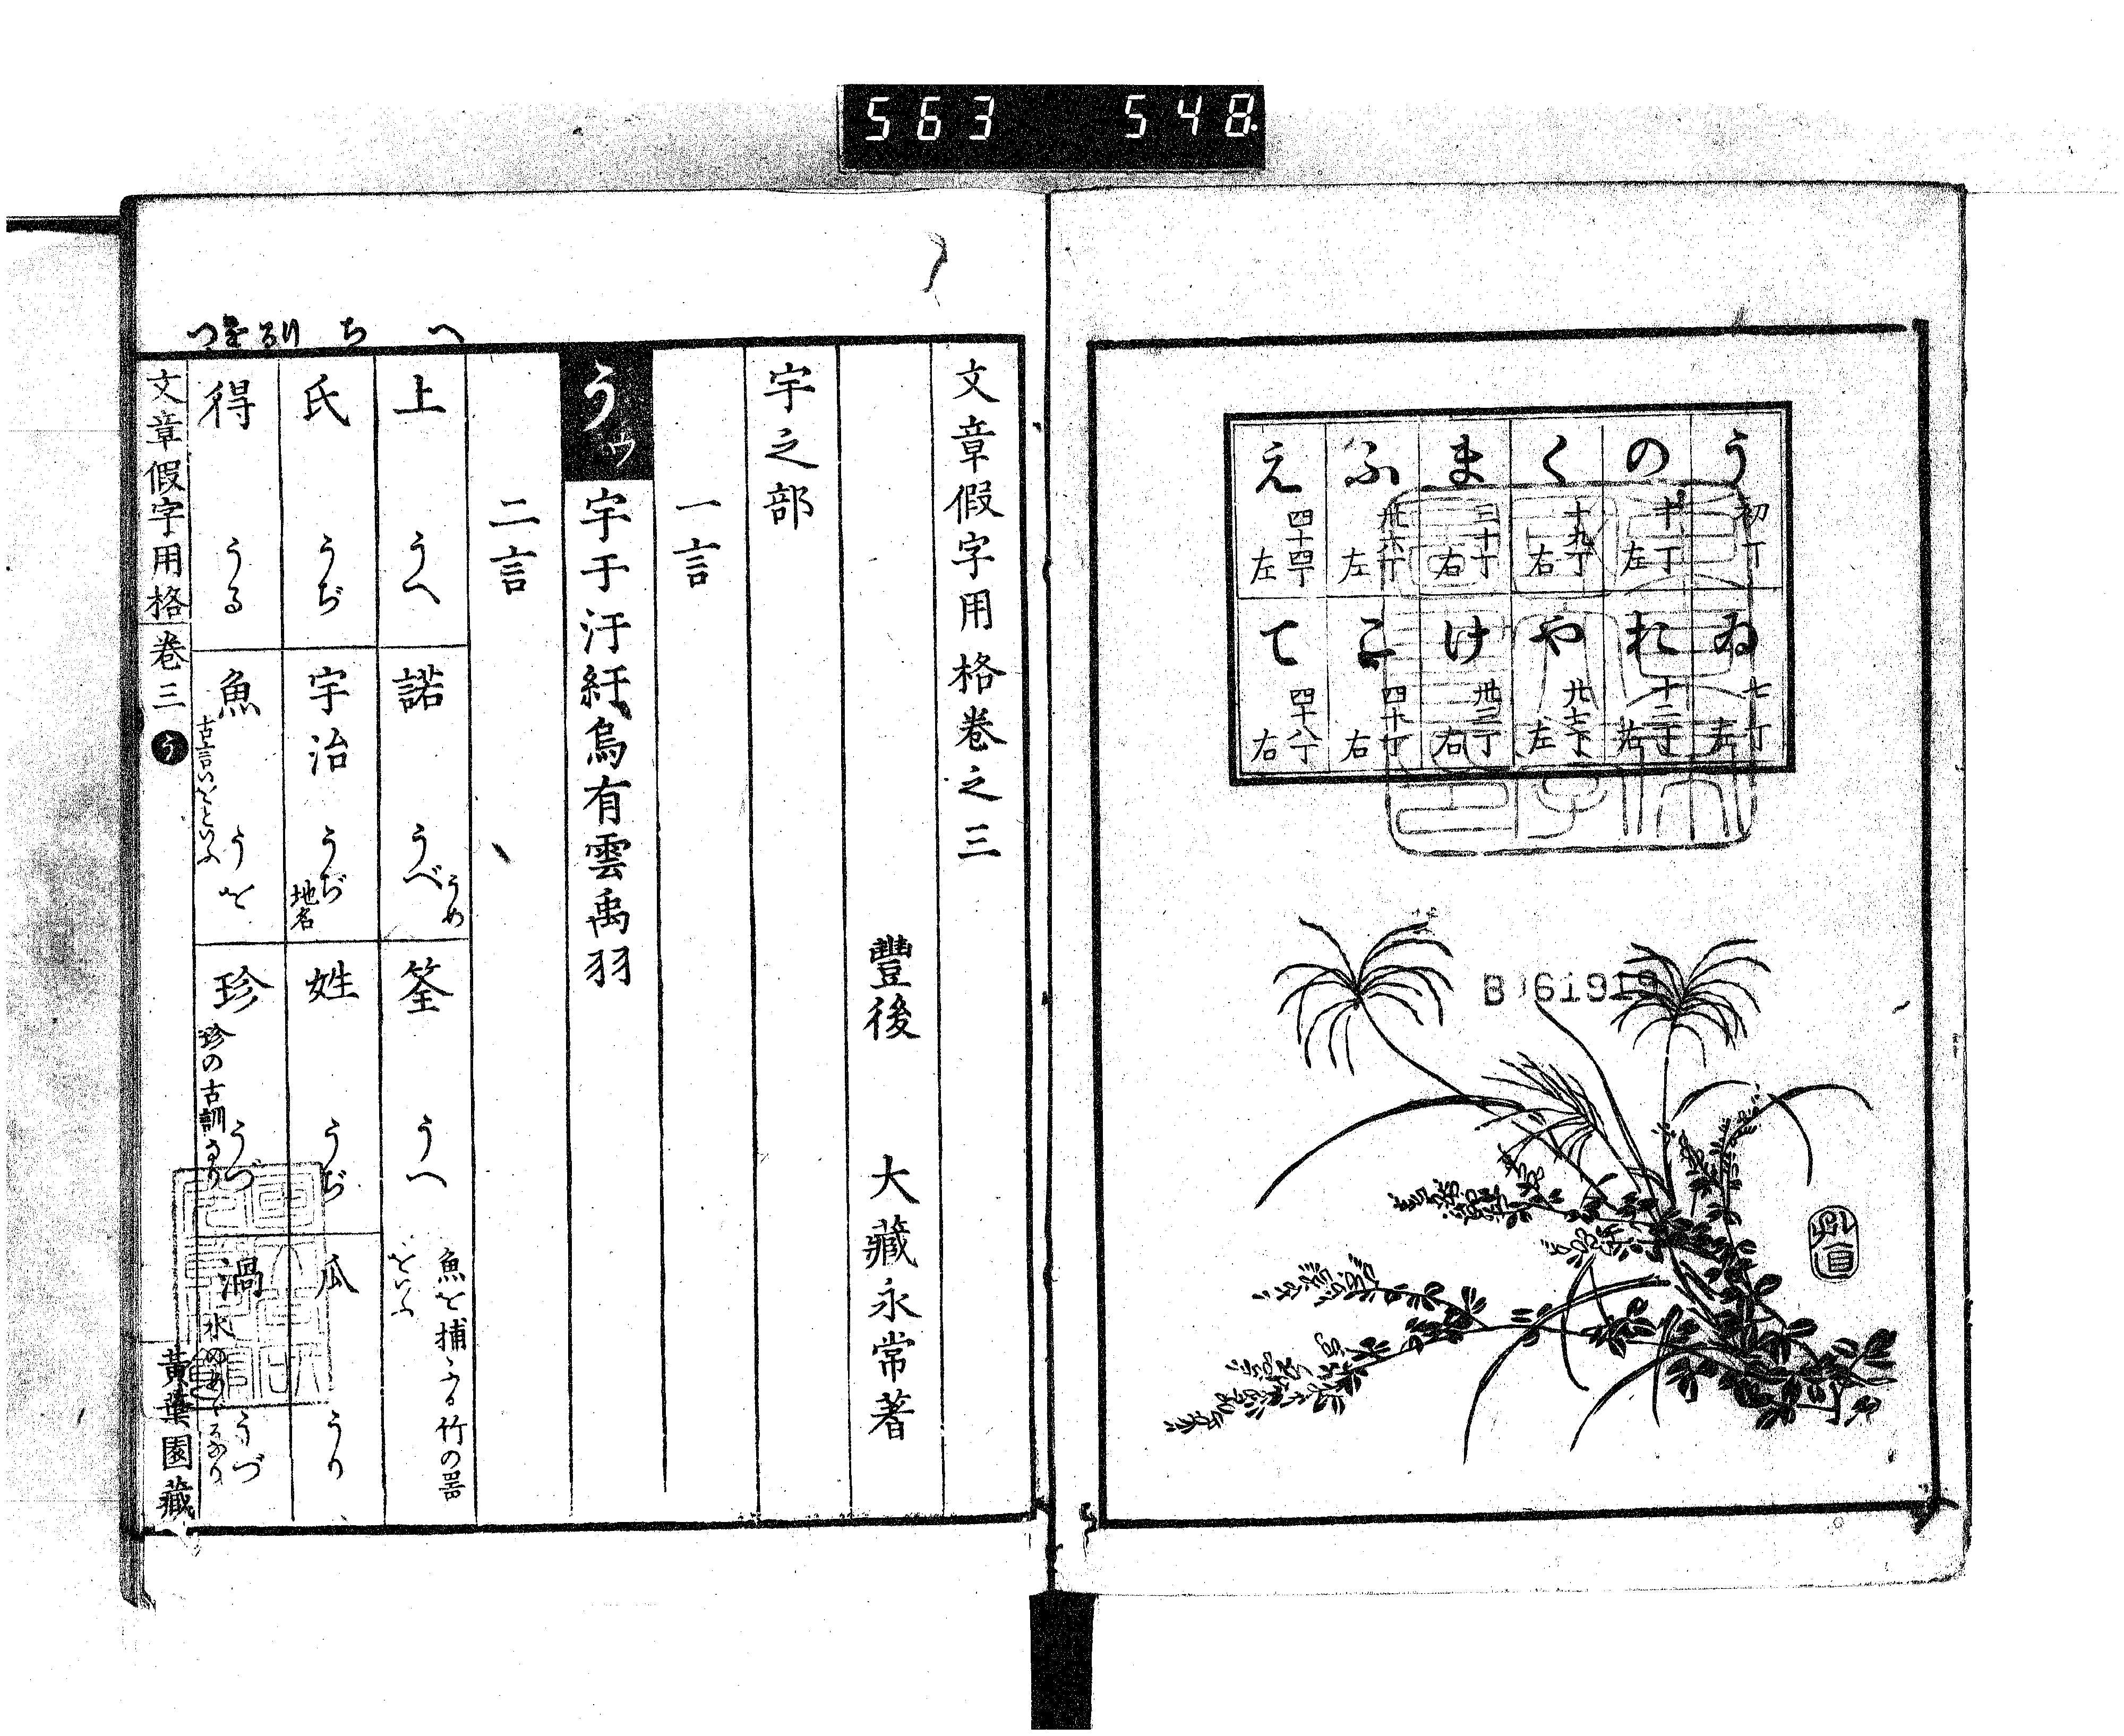 563 548
う 初丁
の 十丁左
く 十九丁右
ま 三十丁右
ふ 丗六丁左
え 四十四丁左
ゐ 七丁左
お 十二丁右
や 廿七丁左
け 丗三丁右
こ 四十丁右
て 四十八丁右
B 61919
文章假字用格巻之三
豐後 大藏永常著
宇之部
一言
うウ 宇于汙紆烏有雲禹羽
二言
へ
上 うへ
諾 うべ うめ
筌 うへ 魚を捕ふる竹の器をいふ
ち
氏 うぢ
宇治 うぢ 地名
姓 うぢ
瓜 うり
りるをつ
得 うる
魚 うを 古言いをといふ
珍 うづ 珍の古訓なり
渦 うづ
文章假字用格 巻三 う
黃葉園藏